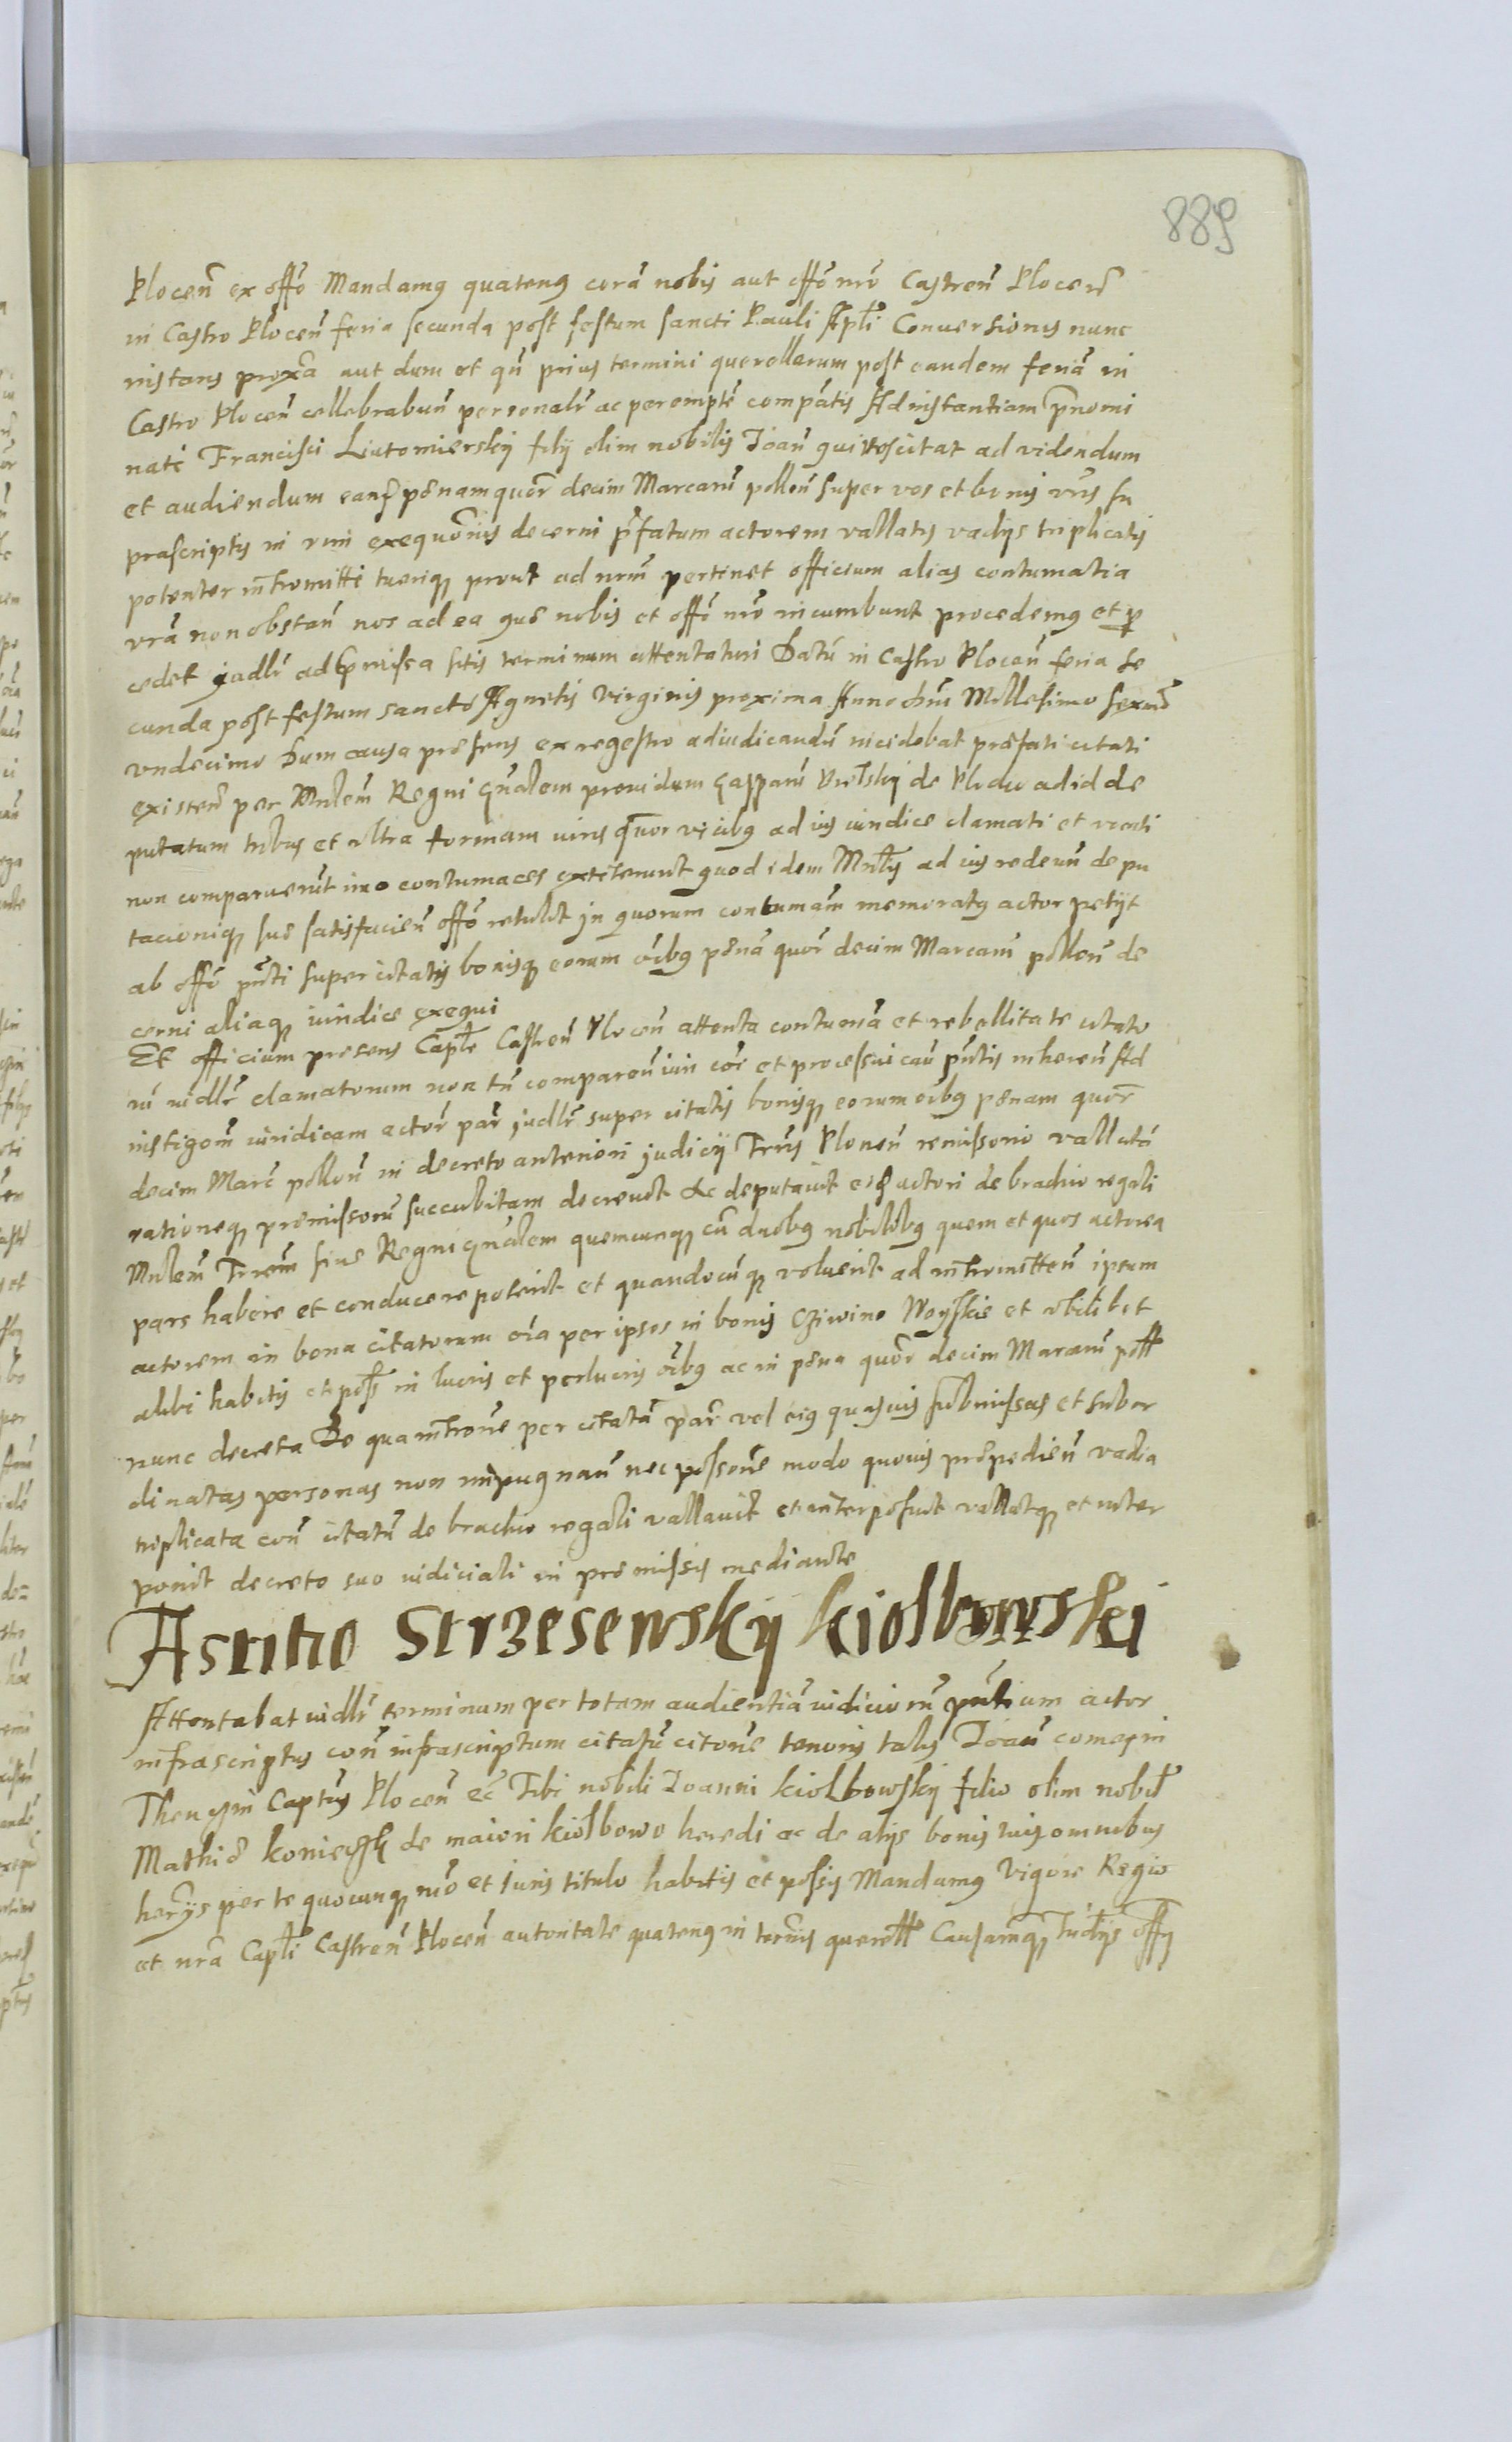 889
Plocen̄ ex offō Mandamꝰ quatenꝰ corā nobis aut offō nrō Castren̄ Plocen̄
in Castro Plocen̄ feria secunda post festum sancti Pauli Apli Conuersionis nunc
instans proxā aut dum et qn̄ prius termini querellarum post eandem feriā in
Castro Plocen̄ cellebrabun̄ personalr̄ ac peremptē compātis Ad instantiam prenomi
nati Francisci Liutomierskÿ filÿ olim nobilis Ioan̄ qui vos citat ad videndum
et audiendum pænam quor̄ decim Marcarū pollon̄ super vos et bonis vrīs su
prascriptis in vim exequōnis decerni pr̄fatum actorem vallatis vadÿs triplicatis
potenter intromitti tueriqꝫ prout ad nrm̄ pertinet officium alias contumatia
vrā non obstan̄ nos ad ea quæ nobis et offō nrō incumbunt procedemꝰ et p̱
cedet iudlr̄ ad præmissa sitis terminum attentaturi Datū in Castro Plocen̄ feria se
cunda post festum sanctæ Agnetis virginis proxima Anno dnī Millesimo sexmō
vndecimo Dum causa præsens ex regestro adiudicandū incidebat præfati citati
existen̄ per Mnlem̄ Regni gn̄alem prouidum Casparū de Plocko ad id de
putatum tribus et vltra formam iuris quor vicibꝰ ad ius iuridice clamati et vocati
non comparuerūt imo contumaces extiterunt quod idem Mnlis ad ius redeun̄ depu
tacioniqꝫ suæ satisfacien̄ offō retulit in quorum contumam̄ memoratꝰ actor petÿt
ab offō pn̄ti super citatis bonisqꝫ eorum oībꝰ pænā quor̄ decim Marcarū pollon̄ de
cerni aliaqꝫ iuridice exequi
Et officium præsens Caple Castren̄ Plocen̄ attenta contumā et rebellitate citato
rū iudlr̄ clamatorum non tn̄ comparen̄ iuri cōi et processui caus pn̄tis inheren̄ Ad
instigom̄ iuridicam actor̄ par̄ iudlr̄ super citatis bonisqꝫ eorum oībꝰ pænam quor̄
decim Marc̄ pollon̄ in decreto anteriori judicÿ Trrīs Plonen̄ remissorio vallatā
rationeqꝫ præmissorū succubitam decreuit Ac deputauit actori de brachio regali
Mnlem̄ Trrem̄ siue Regni gn̄alem quemcunqꝫ cū duobꝰ nobilibꝰ quem et quos actorea
pars habere et conducere poterit et quandocūqꝫ voluerit ad intromitten̄ ipsum
actorem in bona citatorum oīa per ipsos in bonis Cziwino Woyskie et vbilibet
alibi habitis et poss̄ in lucris et perlucris oībꝰ ac in pæna quor̄ decim Marcarū poll
nunc decreta De qua introne per citatā par̄ vel eiꝰ quasuis submissas et subor
dinatas personas non impugnan̄ nec possone modo quouis præpedien̄ vadia
triplicata con̄ citatū de brachio regali vallauit et interposuit vallatqꝫ et inter
ponit decreto suo iudiciali in præmissis mediante
Astitio Strzesewskÿ kiolbowski
Attentabat iudlr̄ terminum per totam audientiā iudiciorū pn̄tium actor
infrascriptus con̄ infrascriptum citatū citone tenoris talis Ioan̄ comes in
Thenczin Captus Plocen̄ ec̄ Tibi nobili Ioanni kiolbowskÿ filio olim nobil
Mathiæ de maiori kiolbowo heredi ac de alÿs bonis tuis omnibus
per te quocunqꝫ mō et iuris titulo habitis et possis Mandamꝰ Vigore Regio
et nrā Capli Castren̄ Plocen̄ autoritate quatenꝰ in termīs querell Causarmqꝫ offÿ